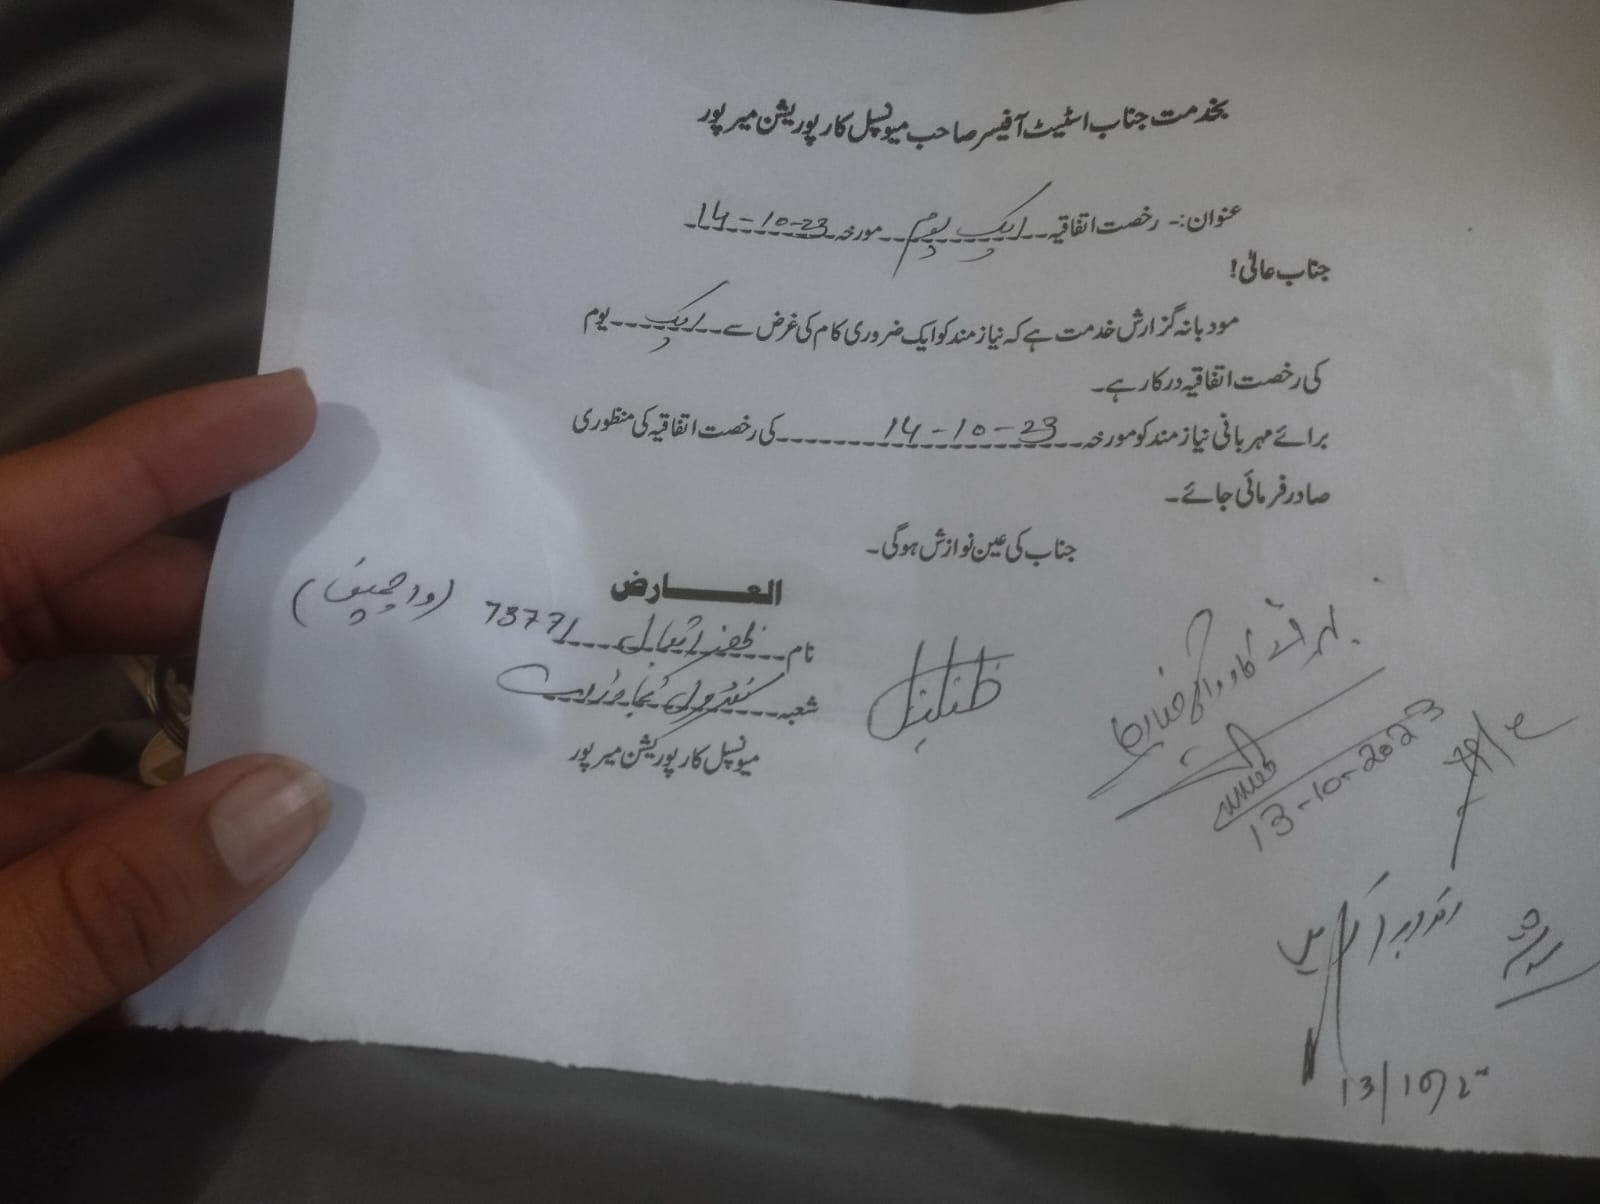 بخدمت جناب اسٹیٹ آفیسر صاحب میونسپل کارپوریشن میرپور
عنوان:۔ رخصت اتفاقیہ ایک یوم مورخہ 14-10-23
جناب عالی!
مودبانہ گزارش خدمت ہے کہ نیازمند کو ایک ضروری کام کی غرض سے ایک یوم
کی رخصت اتفاقیہ درکار ہے۔
برائے مہربانی نیازمند کو مورخہ 14-10-23 کی رخصت اتفاقیہ کی منظوری
صادر فرمائی جائے۔
جناب کی عین نوازش ہوگی۔
العارض
نام ظفر اقبال 7377
شعبہ
میونسپل کارپوریشن میرپور
13-10-2023
13/10/2